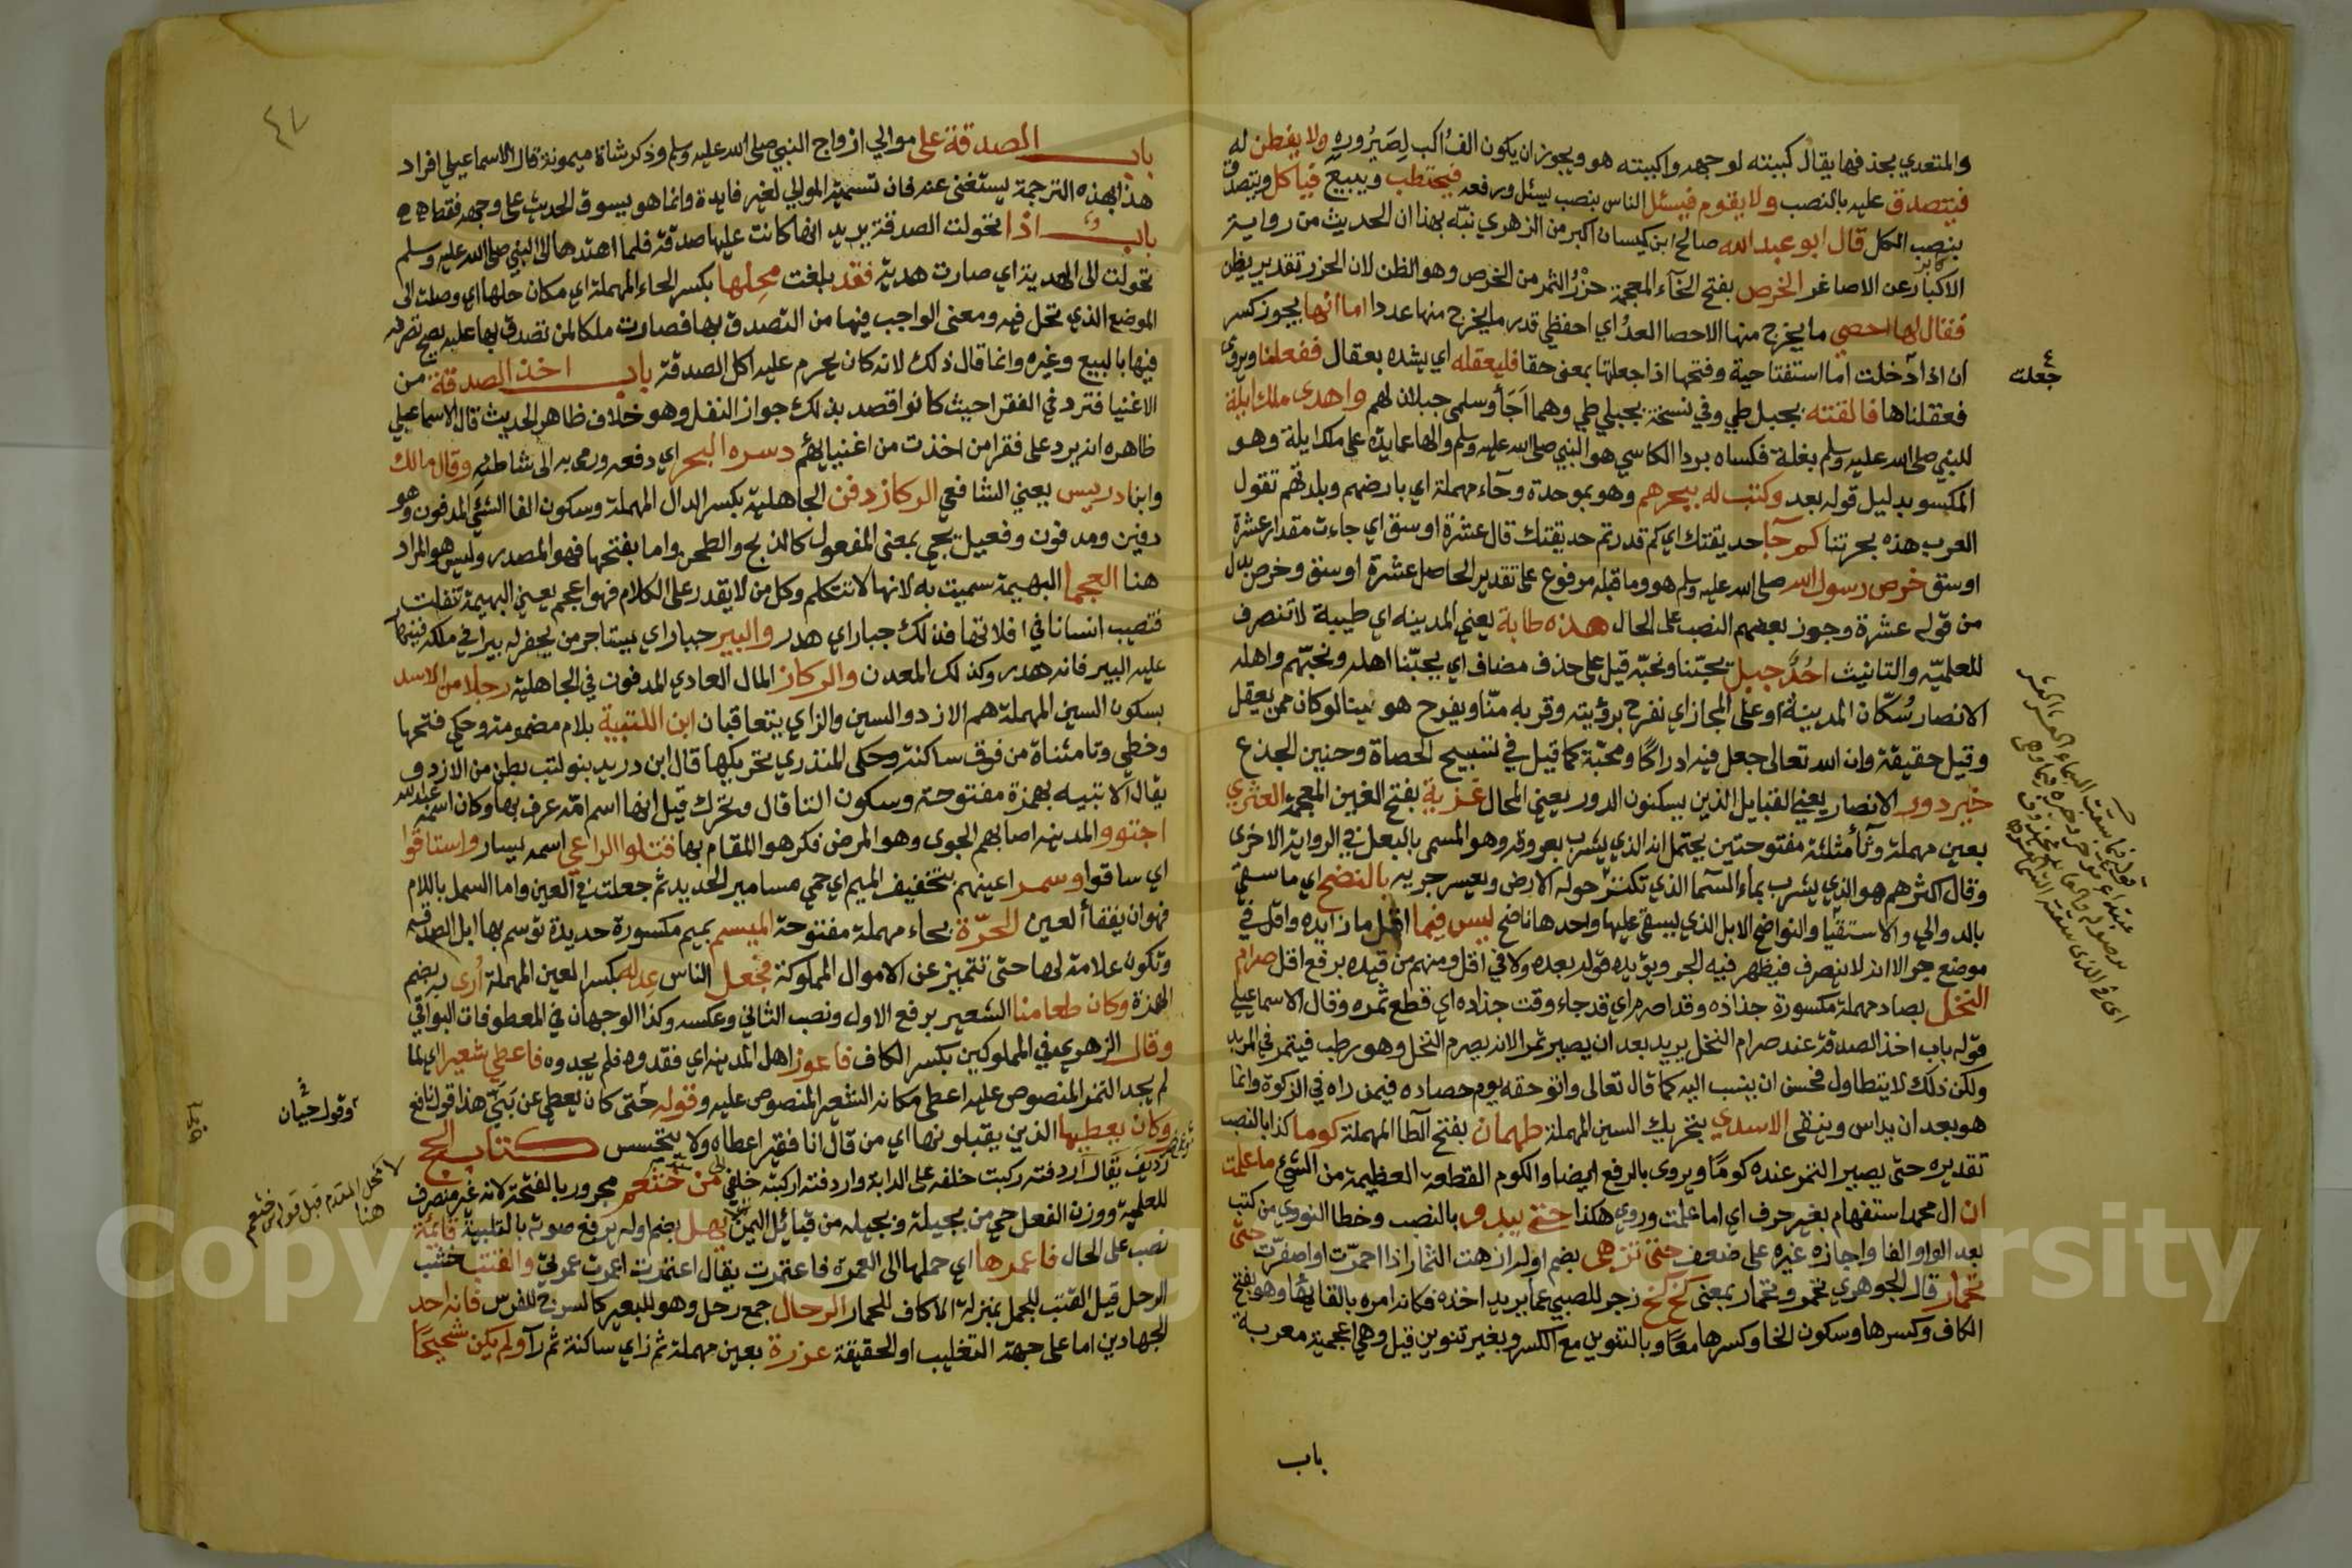 والمتعدي بحذفها يقال كببته لوجهه واكببته هو ويجوزان يكون الف اكب لصيروره ولا يفطن له
فيتصدق عليه بالنصب ولا يقوم فيسئل الناس بنصب يسئل ورفعه فيحتطب ويبيع فياكل ويتصدق
بنصب الكل قال ابو عبد الله صالح ابن كيسان اكبر من الزهري نبّه بهذا ان الحديث من رواية
الاكابر عن الاصاغر الخرص بفتح الخآء المعجمة حزْرُ الثمر من الخرص وهو الظن لان الحزر تقدير بظن
فقال لها احصي ما يخرج منها الاحصا العدُ اي احفظي قدر ما يخرج منها عددا اما انها يجوز كسر
ان اذا دخلت اما استفتاحية وفتحها اذا جعلتها بمعنى حقا فليعقله اي يشده بعقال ففعلنا ويروى
جعلت
فعقلناها فالقته بجبل طي وفي نسخة بجبلي طي وهما اَجَأ وسلمى جبلان لهم واهدى ملك ايلة
للنبي صلى الله عليه وسلم بغلة فكساه بردا الكاسي هو النبي صلى الله عليه وسلم والها عايدة على ملك ايلة وهو
المكسو بدليل قوله بعد وكتب له ببحرهم وهو بموحدة وحآء مهملة اي بارضهم وبلدتهم تقول
العرب هذه بحرتنا كم جآ حديقتك اي كم قدر تمر حديقتك قال عشرة اوسق اي جاءت مقدار عشرة
اوسق خرص رسول الله صلى الله عليه وسلم هو وما قبله مرفوع على تقدير الحاصل عشرة اوسق وخرص بدل
من قوله عشرة وجوز بعضهم النصب على الحال هذه طابة يعني المدينه اي طيبة لا تنصرف
للعلميّه والتانيث اُحُدٌ جبل يحبّنا ونحبّه قيل على حذف مضاف اي يحبّنا اهله ونحبّهم واهله
الانصار سُكّان المدينة او على المجاز اي نفرح برؤيته وقربه منّا ويفرح هو بنا لو كان ممن يعقل
وقيل حقيقة وان الله تعالى جعل فيه ادراكًا ومحبّة كما قيل في تسبيح الحصاة وحنين الجذع
خير دور الانصار يعني القبايل الذين يسكنون الدور يعني المحال غزية بفتح الغين المعجمة العثري
بعين مهملة وثآ مثلثة مفتوحتين يحتمل انه الذي يشرب بعروقه وهو المسمى بالبعل في الرواية الاخرى
وقال اكثرهم هو الذي يشرب بماء السمآ الذي تكنز حوله الارض ويعسر جريه بالنضح اي ما سقي
بالدوالي والاستقيا والنواضح الابل الذي ليسقى عليها واحدها ناضح ليس فيما اقل ما زايده واقل في
موضع جر الا انه لا ينصرف فيظهر فيه الجر ويؤيده قوله بعده ولا في اقل ومنهم من قيده برفع اقل صرام
النخل بصاد مهملة مكسورة جذاذه وقد اصرم اي قد جاء وقت جذاده اي قطع ثمره وقال الاسماعيلي
قوله باب اخذ الصدقة عند صرام النخل يريد بعد ان يصير تمرا لانه يصرم النخل وهو رطب فيتمر في المربد
ولكن ذلك لا يتطاول فحسن ان ينسب اليه كما قال تعالى واتوحقه يوم حصاده فيمن راه في الزكوة وانما
هو بعد ان يداس وينقى الاسدي بتحريك السين المهملة طهمان بفتح الطا المهملة كوما كذا بالنصب
تقديره حتى يصير التمر عنده كومًا ويروى بالرفع ايضا والكوم القطعة العظيمة من الشيء ما علمت
ان ال محمد استفهام بغير حرف اي اما علمت وروي هكذا حتى يبدو بالنصب وخطا النووي من كتب
بعد الواو الفا واجازه غيره على ضعف حتى تزهى بضم اوله ازهت الثمار اذا احمرّت او اصفرّت حتى
تحمار قال الجوهري تحمر وتحمار بمعنى كخ كخ زجر للصبي عما يريد اخذه فكانه امره بالقائها وهو بفتح
الكاف وكسرها وسكون الخا وكسرها معًا وبالتنوين مع الكسر وبغير تنوين قيل وهي اعجمية معربة
باب
باب الصدقة على موالي ازواج النبي صلى الله عليه وسلم وذكر شاة ميمونة قال الاسماعيلي افراد
هذا بهذه الترجمة يستغنى عنه فان تسمية الموالي لغير فايدة وانما هو يسوق الحديث على وجهه فقط
باب اذا تحولت الصدقة يريد انها كانت عليها صدقة فلما اهدتها الى النبي صلى الله عليه وسلم
تحولت الى الهدية اي صارت هدية فقد بلغت محِلها بكسر الحاء المهملة اي مكان حلها اي وصلت الى
الموضع الذي تحل فيه ومعنى الواجب فيها من التصدق بها فصارت ملكا لمن تصدق بها عليه يصح تصرفه
فيها بالبيع وغيره وانما قال ذلك لانه كان يحرم عليه اكل الصدقة باب اخذ الصدقة من
الاغنيا فترد في الفقرا حيث كانوا قصد بذلك جواز النقل وهو خلاف ظاهر الحديث قال الاسماعيلي
ظاهره انه يرد على فقرا من اخذت من اغنيائهم دسره البحر اي دفعه ورمى به الى شاطئه وقال مالك
وابن ادريس يعني الشافعي الركاز دفن الجاهلية بكسر الدال المهملة وسكون الفا الشئ المدفون وهو
دفين ومدفون وفعيل يجي بمعنى المفعول كالذبح والطحن واما بفتحها فهو المصدر وليس هو المراد
هنا العجما البهيمة سميت به لانها لا تتكلم وكل من لا يقدر على الكلام فهو اعجم يعني البهيمة تفلت
فتصيب انسانا في افلاتها فذلك جبار اي هدر والبير جبار اي يستاجر من يحفر له بيرا في ملكه فينهار
عليه البير فانه هدر وكذلك المعدن والركاز المال العادي المدفون في الجاهلية رجلا من الاسد
بسكون السين المهملة هم الازد والسين والزاي يتعاقبان ابن اللتبية بلام مضمومة وحكي فتحها
وخطي وتا مثناة من فوق ساكنة وحكى المنذري تحريكها قال ابن دريد بنو لتب بطن من الازد و
يقال الاتبيه بهمزة مفتوحة وسكون التا قال وتحرك قيل انها اسم امّه عرف بها وكان اسمه عبد الله
اجتووا المدينه اصابهم الجوى وهو المرض فكرهوا المقام بها فقتلوا الراعي اسمه يسار واستاقوا
اي ساقوا وسمر اعينهم بتخفيف الميم اي حمي مسامير الحديد ثم جعلت في العين واما السمل باللام
فهو ان يفقأ العين الحرّة بحاء مهملة مفتوحة الميسم بميم مكسورة حديدة توسم بها ابل الصدقة
وتكون علامة لها حتى تتميز عن الاموال المملوكة فجعل الناس عِدله بكسر العين المهملة اُرى بضم
الهمزة وكان طعامنا الشعير برفع الاول ونصب الثاني وعكسه وكذا الوجهان في المعطوفات البواقي
وقال الزهري في المملوكين بكسر الكاف فاعوز اهل المدينه اي فقدوه فلم يجدوه فاعطى شعيرا اي لما
لم يجد التمر المنصوص عليه اعطى مكانه الشعير المنصوص عليه وقوله حتى كان يعطي عن بَنيّ هذا قول نافع
وكان يعطيها الذين يقبلونها اي من قال انا فقير اعطاه ولا يتجسس كتاب الحج
رديف يقال اردفته ركبت خلفه على الدابة واردفته اركبته خلفي من خثعم مجرور بالفتحة لانه غير منصرف
للعلمية ووزن الفعل حي من بجيلة وبجيله من قبائل اليمن يهل بضم اوله يرفع صوته بالتلبية قائمة
نصب على الحال فاعمرها اي حملها الى العمرة فاعتمرت يقال اعتمرت اعمرت عمرتي والقتب خشب
الرحل قيل القتب للجمل بمنزلة الاكاف للحمار الرحال جمع رحل وهو للبعير كالسرج للفرس فانه احد
الجهادين اما على جهة التغليب او الحقيقة عزرة بعين مهملة ثم زاي ساكنة ثم رآ ولم يكن شحيحًا
لا محل المقدم قبل قوله من خثعم
هنا
Copyright © King Saud University